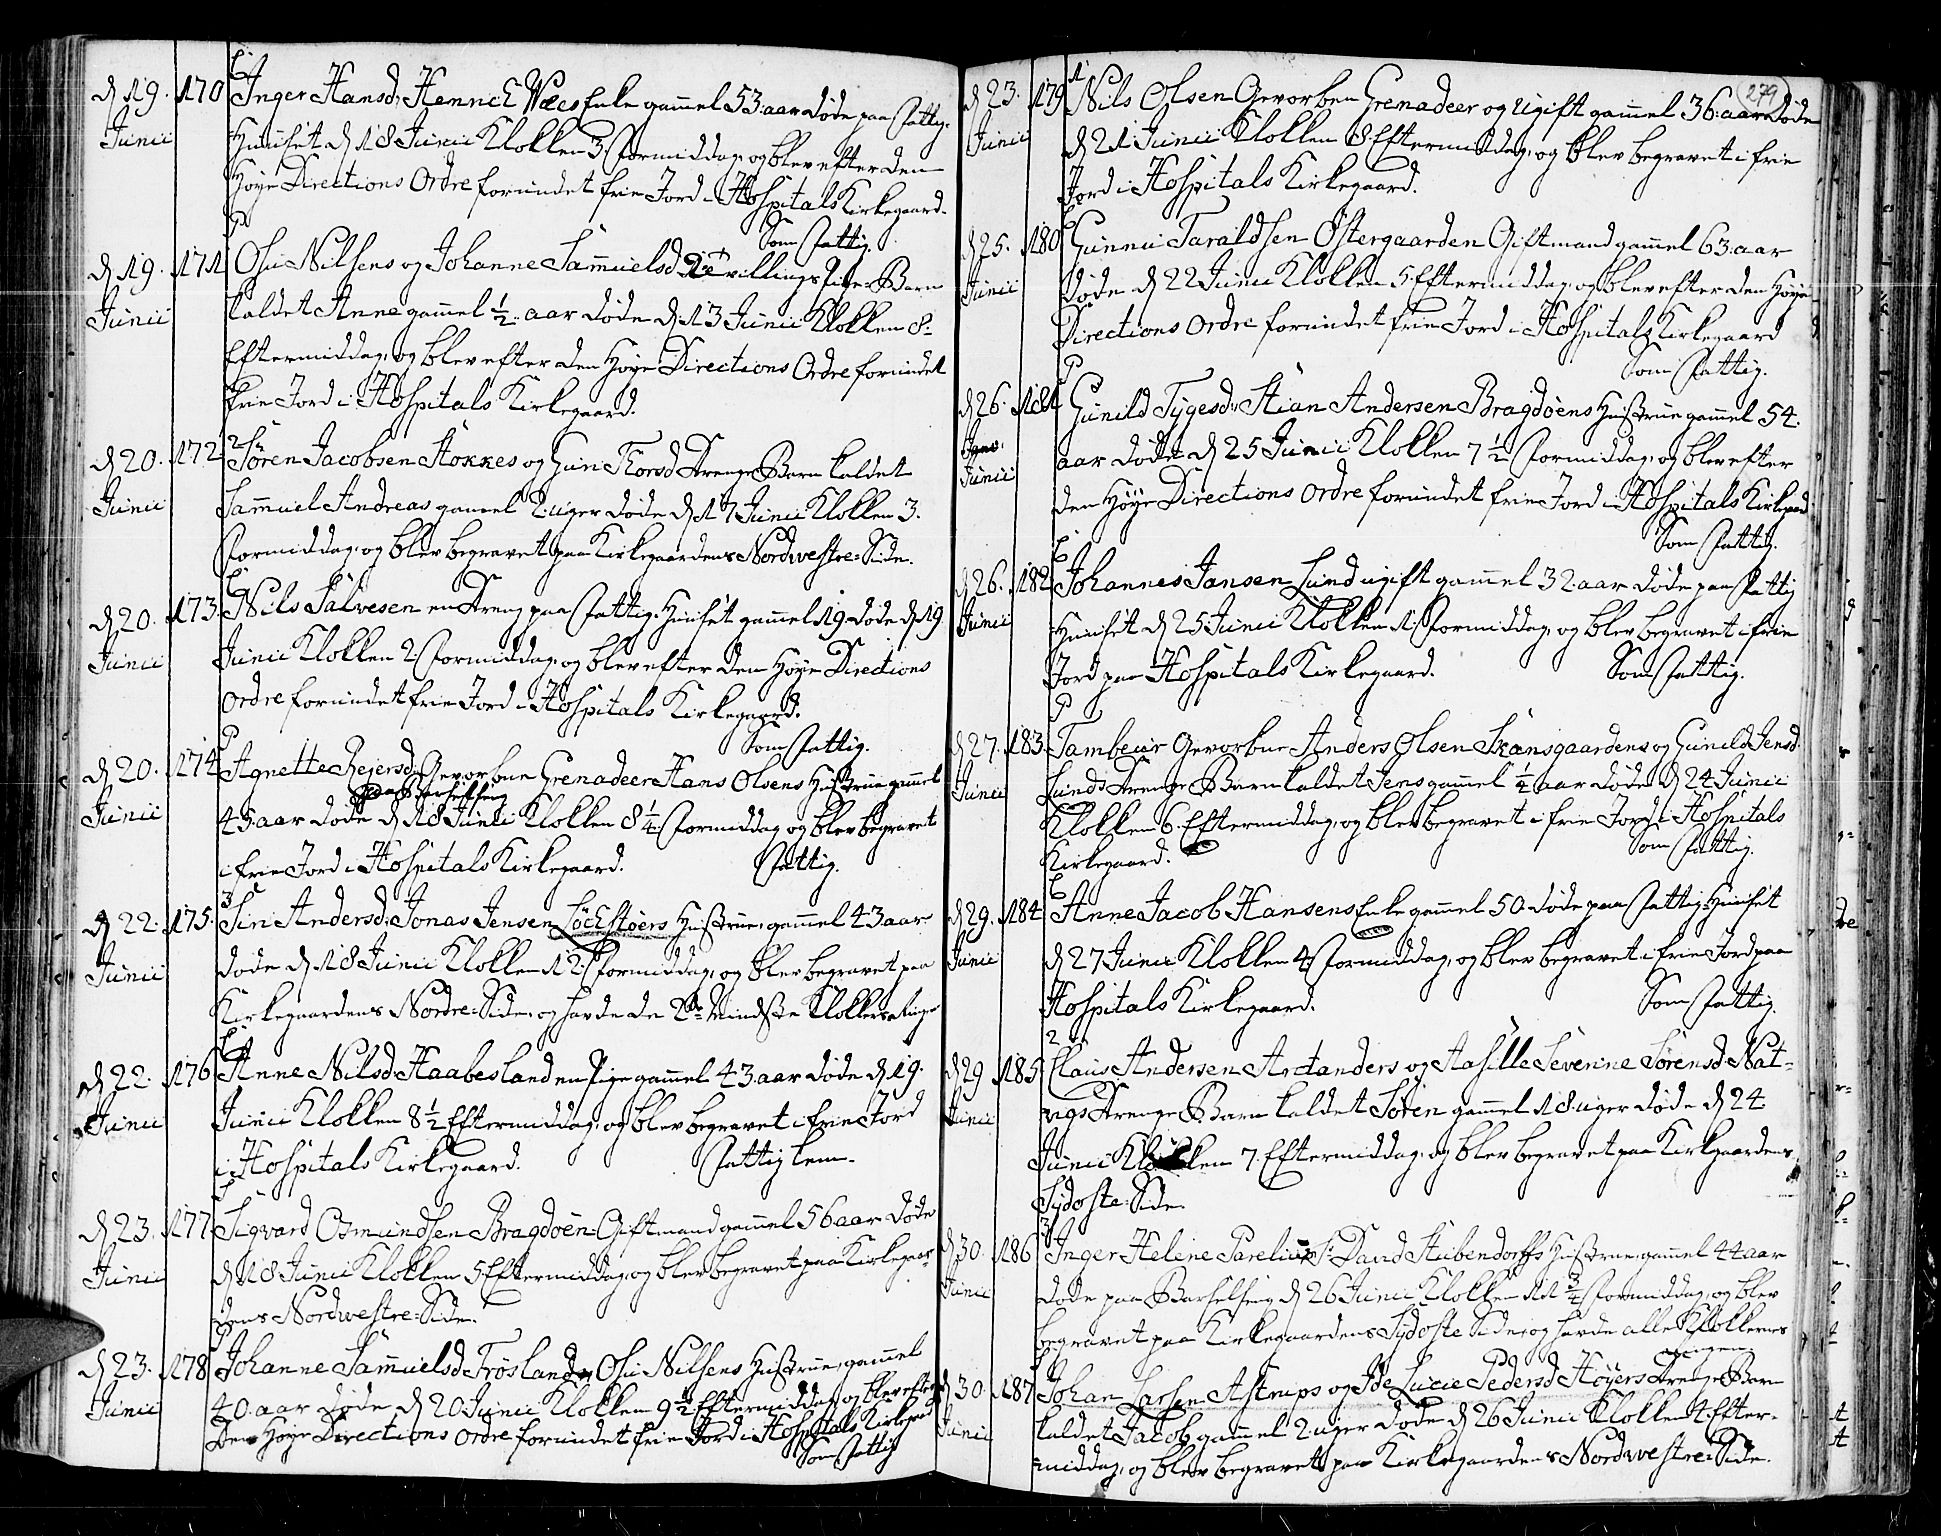 d 19. Junii 170
Inger Hansd: Hennich Wæes Enke gammel 53 aar døde paa Fattig-
Huuset d 18 Junii Klokken 3. Formiddag, og blev efter den
Høye Directions Ordre forundet frie Jord i Hospitals Kirkegaard.
Som Fattig.
d 19. Junii 171
Osu Nilsens og Johanne Sammuelsd Tvillings Pige-Barn
kaldet Anne gammel ½ aar døde d 13 Junii Klokken 8
Eftermiddag, og blev efter den Høye Directions Ordre forundet
frie Jord i Hospitals Kirkegaard.
d 20. Junii 172
2
Søren Jacobsen Stokkes og Guri Thorsd Drenge Barn kaldet
Sammuel Andreas gammel 2. uger døde d 17 Junii Klokken 3.
Formiddag, og blev begravet paa Kirkegaardens Nordvestre-Side.
d 20. Junii 173.
Nils Salvesen en Dreng paa Fattig-Huuset gammel 19. døde d 19
Junii Klokken 2 Formiddag, og blev efter den Høye Directions
Ordre forundet frie Jord i Hospitals Kirkegaard.
Som Fattig.
d 20. Junii 174
Agnette Rejersd: Gevorbne Grenadeer Hans Olsens Hustrue gammel
paa Barselseng
45. aar døde d 18 Junii Klokken 8 ¼ Formiddag og blev begravet
i frie Jord i Hospitals Kirkegaard. Fattig.
d 22. Junii 175.
3
Siri Andersd: Jonas Jensen Løchstøers Hustrue, gammel 43 aar
døde d 18 Junii Klokken 12. Formiddag, og blev begravet paa
Kirkegaardens Nordre-Side, og havde de 2de Mindste Klokkers
d 22. Junii 176
Anne Nilsd Haabesland en Pige gammel 43. aar døde d 19.
Junii Klokken 8 ½ Eftermiddag, og blev begravet i frie Jord
i Hospitals Kirkegaard. Fattig Lem-
d 23. Junii 177
Sigvard Osmundsen Bragdøen Giftmand gammel 56 aar døde
d 18 Junii Klokken 5 Eftermiddag, og blev begravet paa Kirkegaar-
dens Nordvestre-Side.
d 23. Junii 178
Johanne Sammuelsd Frøsland, Osu Nilsens Hustrue, gammel
40. aar døde d 20 Junii Klokken 9 ½ Eftermiddag, og blev efter
Den Høye Directions Ordre forundet frie Jord i Hospitals Kirkegaard
Som Fattig
279
d 23. Junii 179
Nils Olsen Gevorben Grenadeer og Ugift gammel 36. aar Døde
d 21 Junii Klokken 8. Eftermiddag, og blev begravet i frie
Jord i Hospitals Kirkegaard.
d 25. Junii 180
Gunnu Taraldsen Østergaarden Giftmand gammel 63. aar
døde d 22 Junii Klokken 5. Eftermiddag, og blev efter den Høye
Directions Ordre forundet frie Jord i Hospitals Kirkegaard
Som Fattig.
d 26. Junii 181
Gunild Tygesd: Stian Andersen Bragdøens Hustrue gammel 54.
aar døde d 25 Junii Klokken 7 ½ Formiddag, og blev efter
den Høye Directions Ordre forundet frie Jord i Hospitals Kirkegaard
Som Fattig.
d 26. Junii 182
Johannes Jansen Lund ugift gammel 32 aar døde paa Fattig
Huuset d 25 Junii Klokken 1 Formiddag, og blev begravet i frie
Jord paa Hospitals Kirkegaard. Som Fattig.
d 27. Junii 183.
Tambeur Gevorbne Anders Olsen Skansgaardens og Gunild Jensd.
Lunds Drenge Barn kaldet Jens gammel ½ aar døde d 24 Junii
Klokken 6. Eftermiddag, og blev begravet i frie Jord i Hospitals
Kirkegaard. Som Fattig.
d 29. Junii 184
Anne Jacob Hansens Enke gammel 50. døde paa Fattig-Huuset
d 27 Junii Klokken 4 Formiddag, og blev begravet i frie Jord paa
Hospitals Kirkegaard. Som Fattig.
d 29 Junii 185
2
Claus Andersen Arctanders og Aasille Severine Sørensd Nat-
vigs Drenge Barn kaldet Søren gammel 18. uger døde d 24
Junii Klokken 7. Eftermiddag, og blev begravet paa Kirkgaardens
Sydoste-Side.
d 30. Junii 186
3
Inger Helene Parelius S: David Stubendorffs Hustrue, gammel 44 aar
døde paa Barselseng d 26 Junii Klokken 11 ¾ Formiddag, og blev
begravet paa Kirkegaardens Sydoste Side, og havde alle Klokkernes
d 30. Junii 187
Johan Larsen Astrups og Ide Lucie Pedersd Høyers Drenge Barn
kaldet Jacob gammel 2. uger døde d 26 Junii Klokken 4 Efter-
middag, og blev begravet paa Kirkegaardens Nordvestre-Side.